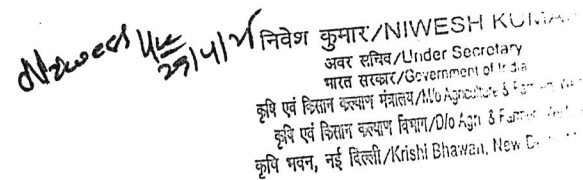 निवेश कुमार/NIWESH KUMA
अवर सचिव/Under Secretary
भारत सरकार/Government of India
कृषि एवं किसान कल्याण मंत्रालय/M/o Agriculture & Farmers We
कृषि एवं किसान कल्याण विभाग/D/o Agri. & Farmer
कृषि भवन, नई दिल्ली/Krishi Bhawan, New D